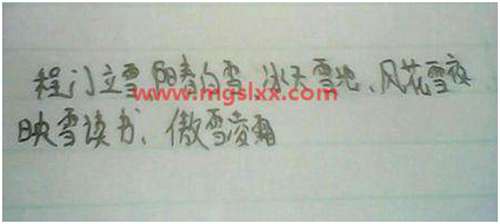 程门立雪 阳春白雪、冰天雪地、风花雪夜
www.mgslxx.com
映雪读书、傲雪凌霜